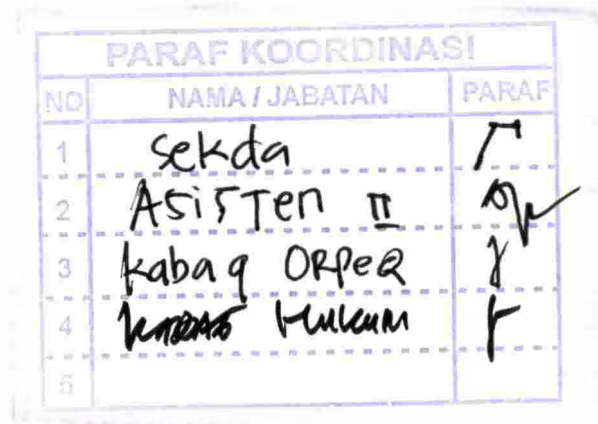 PARAF KOORDINASI
NO NAMA / JABATAN PARAF
1 Sekda
2 ASiSTen II
3 kabag ORPeR
4 Hukum
5